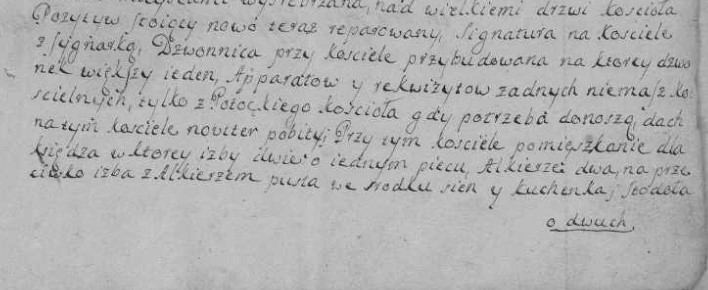 wysrebrzana, nad wielkiemi drzwi kościoła
Pozytyw stoięcy nowo teraz reparowany, Signatura na kościele
z sygnarką, Dzwonnica przy kościele przybudowana na ktorey dzwo
nek większy ieden, Apparatow y rekwizytow żadnych niemasz ko
scielnych, tylko z Potockiego kościoła gdy potrzeba donoszą, dach
na tym kosciele noviter pobity; Przy tym kosciele pomięszkanie dla
księdza w ktorey izby dwie o iednym piecu, Alkierze dwa, na prze
ciwko izba z Alkierzem pusta we srodku sien y kuchenka; Stodoła
o dwuch,